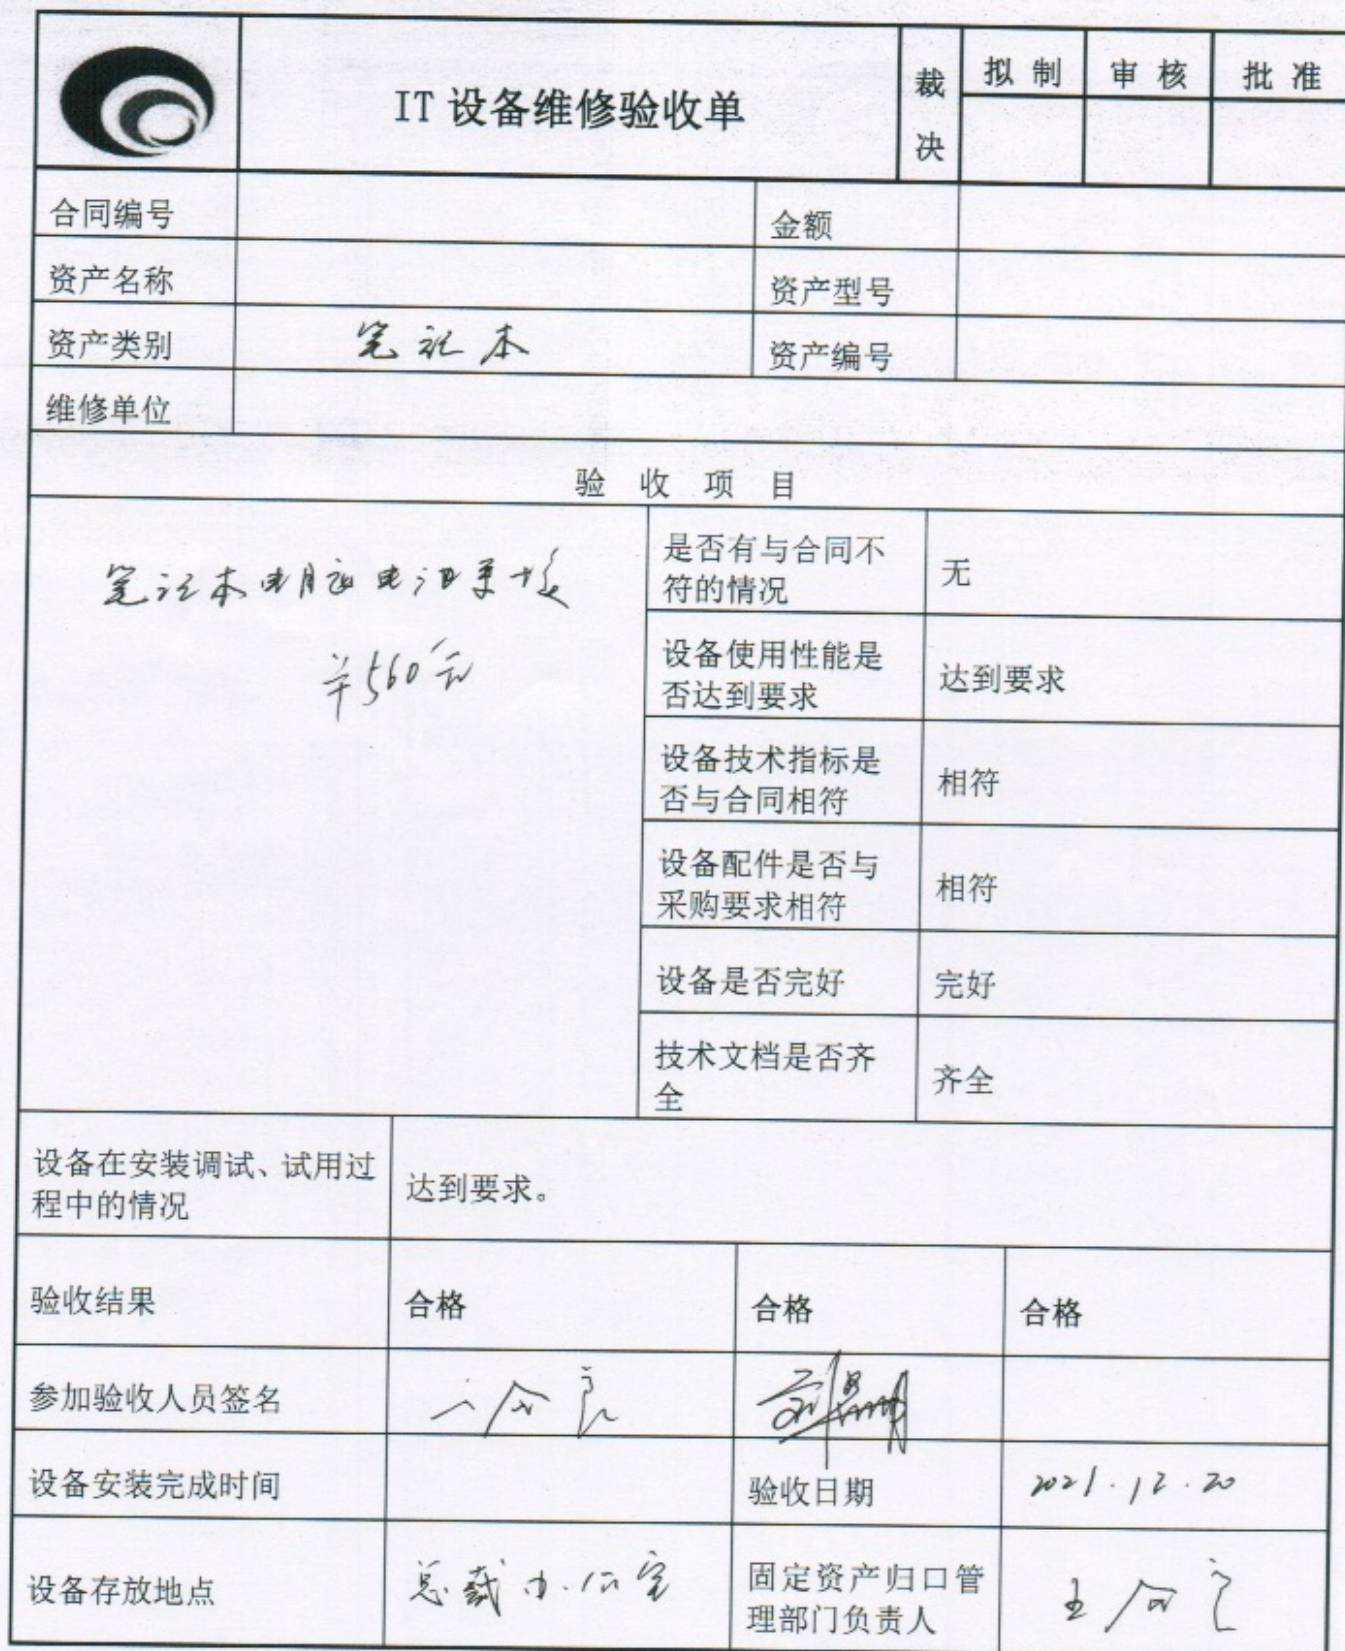 IT 设备维修验收单
裁决
拟 制
审 核
批 准
合同编号
金额
资产名称
资产型号
资产类别 笔记本
资产编号
维修单位
验 收 项 目
笔记本电脑电池更换
¥560元
是否有与合同不
符的情况
无
设备使用性能是
否达到要求
达到要求
设备技术指标是
否与合同相符
相符
设备配件是否与
采购要求相符
相符
设备是否完好
完好
技术文档是否齐
全
齐全
设备在安装调试、试用过
程中的情况
达到要求。
验收结果 合格 合格 合格
参加验收人员签名
设备安装完成时间
验收日期 2021.12.20
设备存放地点 总裁办公室
固定资产归口管
理部门负责人